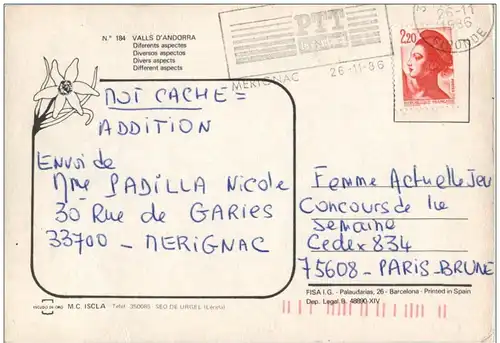 N.° 184 VALLS D'ANDORRA
Diferents aspectes
Diversos aspectos
Divers aspects
Different aspects
PTT
MERIGNAC 26-11-86
26-11
1986
GIRONDE
2,20
REPUBLIQUE FRANÇAISE
MOT CACHE =
ADDITION
Envoi de
Mme PADILLA Nicole
30 Rue de GARIES
33700 - MERIGNAC
Femme Actuelle Jeu
Concours de la
Semaine
Cedex 834
75608 - PARIS - BRUNE
ESCUDO DE ORO M.C. ISCLA Telef. 350085 SEO DE URGEL (Lérida)
FISA I.G. - Palaudarias, 26 - Barcelona - Printed in Spain
Dep. Legal B. 48890-XIV